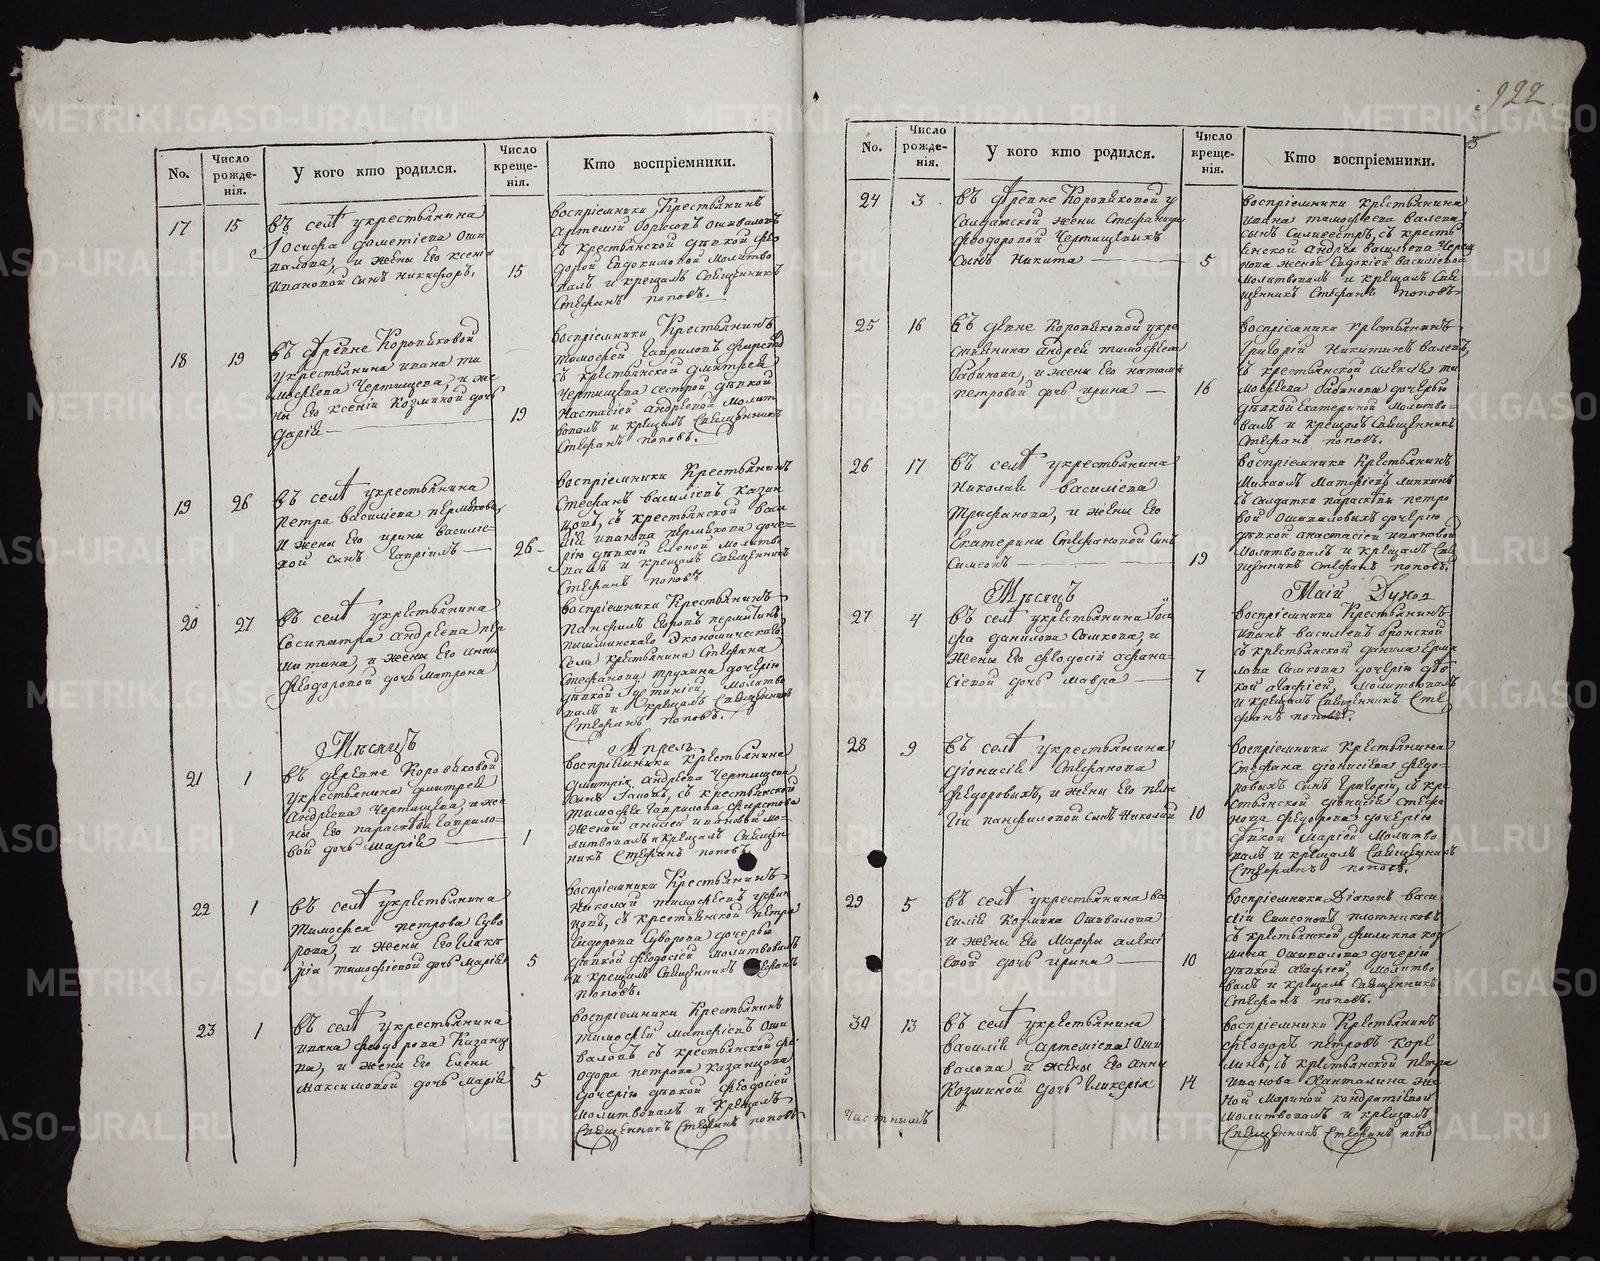 922
No.
Число рожде-нія.
У кого кто родился.
Число креще-нія.
Кто воспріемники.
17
15
въ селѣ укрестьянина
Іосифа
и жены его ксеніи
ивановой сынъ никифоръ.
15
воспріемники Крестьянинъ
Артемій Борисовъ Ошиваловъ
съ крестьянской дѣвкой Фео
дорой Евдокимовой Молитво
валъ и крещалъ Священникъ
Стефанъ поповъ.
18
19
въ древне Коровяковой
укрестьянина ивана ти
мофеева Чертищева, и же
ны его ксеніи Козминой дочь
Дарія
19
воспріемники Крестьянинъ
тимофей гавриловъ
съ крестьянской дмитрея
Чертищева сестрой дѣвкой
Настасіей андреевой Молит
вовалъ и крещалъ Священникъ
Стефанъ поповъ.
19
26
въ селѣ укрестьянина
петра василіева пермякова,
и жены его ирины василіе-
вой сынъ гавріилъ
26
воспріемники Крестьянинъ
Стефанъ василіевъ казан
цовъ, съ крестьянской васи
лія иванова пермякова доче-
рію дѣвкой еленой молитво
валъ и крещалъ Священникъ
Стефанъ поповъ
20
27
въ селѣ укрестьянина
Сосипатра андреева пер
митина, и жены его анны
феодоровой дочь матрона
воспріемники Крестьянинъ
панфилъ
экономическаго
села крестьянина Стефана
Стефанова трухина дочерію
дѣвкой Іустиніей, молитво
валъ и крещалъ Священникъ
Стефанъ поповъ.
Мѣсяцъ
Апрель
21
1
въ деревне Коровяковой
укрестьянина дмитрея
андреева Чертищева, и же
ны его параскевы гаврило-
вой дочь марія
1
воспріемники Крестьянина
дмитрія андреева Чертищева
сынъ съ крестьянской
тимофея гаврилова
женой анисіей ивановой мо-
литвовалъ и крещалъ Священ
никъ Стефанъ поповъ.
22
1
въ селѣ укрестьянина
тимофея петрова Суво
рова, и жены его
тимофіевой дочь марія
5
воспріемники Крестьянинъ
Николай тимофеевъ
съ крестьянской петра
Сидорова Суворова дочерью
дѣвкой феодосіей молитвовалъ
и крещалъ Священникъ Стефанъ
поповъ.
23
1
въ селѣ укрестьянина
ивана феодорова Казанцо
ва, и жены его Елены
максимовой дочь марія
5
воспріемники Крестьянинъ
тимофей матфіевъ Оши
валовъ съ крестьянской фе
одора петрова казанцова
дочерію дѣвкой феодосіой
молитвовалъ и Крещалъ
Священникъ Стефанъ поповъ
No.
Число рожде-нія.
У кого кто родился.
Число креще-нія.
Кто воспріемники.
24
3
въ дрепне Коровяковой у
Салдатской жены Стефаниды
феодоровой Чертищевыхъ
Сынъ Никита
5
воспріемники крестьянина
ивана тимофеева
сынъ Силивестръ, съ кресть
янской андрея василіева Черти
щева женой Евдокіей василіевой
молитвовалъ и крещалъ Свя
щенникъ Стефанъ поповъ
25
16
въ депне Коровяковой укре
стьянина андрей тимофеева
бабинова, и жены его наталіи
петровой дочь ирина
16
воспріемники крестьянинъ
Григорій Никитинъ
съ крестьянской алексея ти
мофеева бабинова дочерью
дѣвкой Екатериной молитво-
валъ и крещалъ Священникъ
Стефанъ поповъ.
26
17
въ селѣ укрестьянина
Николая василіева
трифанова, и жены его
Екатерины Стефановой сынъ
Симеонъ
19
воспріемники Крестьянинъ
Михаилъ матфіевъ
съ салдатки параскевы петро
вой Ошиваловыхъ дочерію
дѣвкой анастасіей ивановой
молитвовалъ и крещалъ Свя
щенникъ Стефанъ поповъ.
Мѣсяцъ
Маій
27
4
въ селѣ укрестьянина Іоси
фа данилова Самкова, и
жены его феодосіи афана-
сіевой дочь мавра
7
воспріемники Крестьянинъ
иванъ василіевъ
съ крестьянской данила ерми
лова Самкова дочерію дѣв
кой агафіей, молитвовалъ
и крещалъ Священникъ Сте
фанъ поповъ.
28
9
въ селѣ укрестьянина
діонисія Стефанова
феодоровыхъ, и жены его пела
гіи панфиловой сынъ Николай
10
воспріемники Крестьянина
Стефана діонисіева федо-
ровыхъ сынъ Григорій, съ кре
стьянской діонисія стефа
нова федорова дочерію
дѣвкой маріей молитво
валъ и крещалъ Священникъ
Стефанъ поповъ.
29
5
въ селѣ укрестьянина ва
силія Козмина Ошивалова
и жены его марфы алексі
евой дочь ирина
10
воспріемники Діаконъ васи
лій Симеоновъ плотниковъ
съ крестьянской филиппа коз
мина Ошивалова дочерію
дѣвкой агафіей, молитво
валъ и крещалъ Священникъ
Стефанъ поповъ.
30
13
въ селѣ укрестьянина
василія артеміева Оши
валова, и жены его анны
Козминой дочь гликерія
14
воспріемники Крестьянинъ
феодоръ петровъ
съ крестьянской петра
иванова же
ной мариной кондратіевой
молитвовалъ и крещалъ
Священникъ Стефанъ попо
частнымъ
METRIKI.GASO-URAL.RU